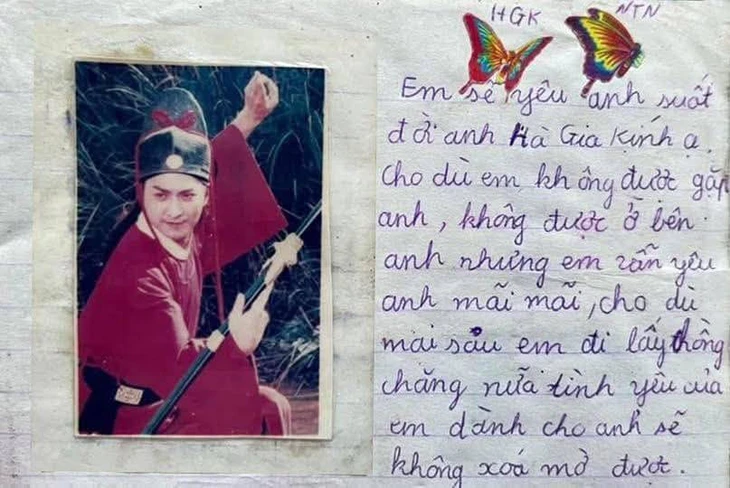 HGK NTN
Em sẽ yêu anh suốt
đời anh Hà Gia Kính ạ.
Cho dù em không được gặp
anh, không được ở bên
anh nhưng em vẫn yêu
anh mãi mãi, cho dù
mai sau em đi lấy chồng
chăng nữa tình yêu của
em dành cho anh sẽ
không xoá mờ được.